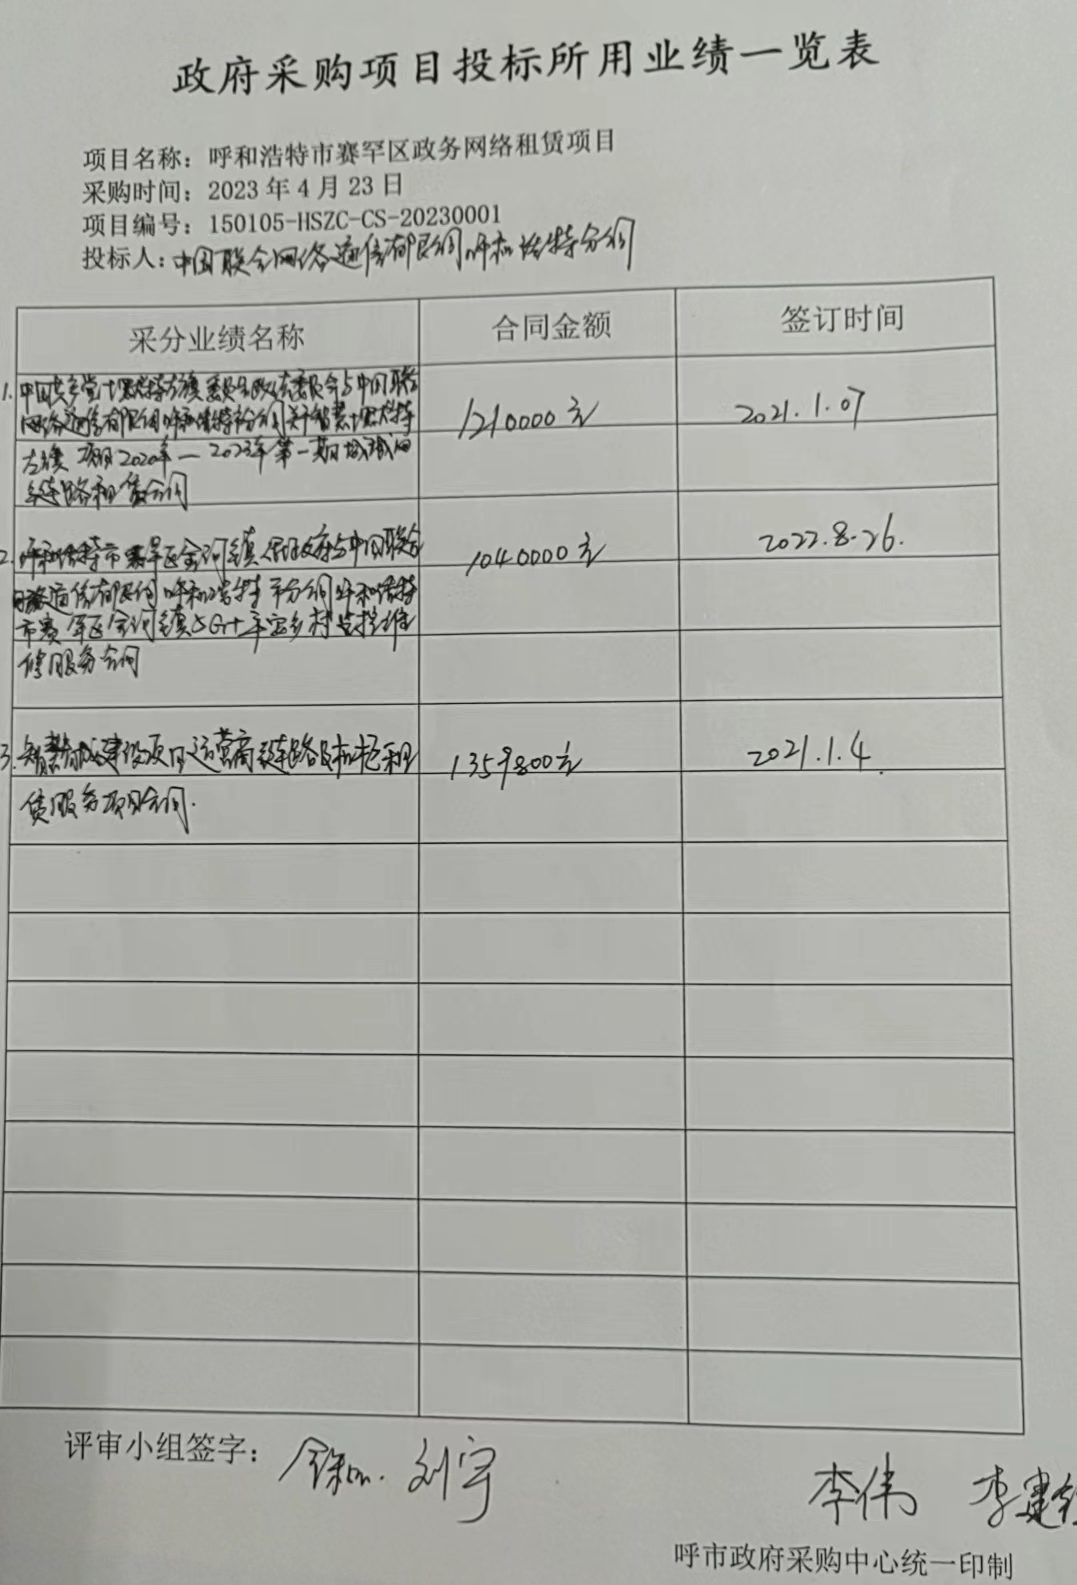 政府采购项目投标所用业绩一览表
项目名称：呼和浩特市赛罕区政务网络租赁项目
采购时间：2023年4月23日
项目编号：150105-HSZC-CS-20230001
投标人：中国联合网络通信有限公司呼和浩特分公司
采分业绩名称 合同金额 签订时间
1. 中国共产党土默特左旗委员会政法委员会与中国联合
网络通信有限公司呼和浩特市分公司关于智慧土默特
左旗 项目2020年—2023年第一期城域网
链路租赁合同
1210000元 2021.1.07
2. 呼和浩特市赛罕区金河镇人民政府与中国联合
网络通信有限公司呼和浩特市分公司呼和浩特
市赛罕区金河镇5G+平安乡村监控维
修服务合同
1040000元 2022.8.26.
3. 智慧青城建设项目运营商链路及机柜租
赁服务项目合同.
1359800元 2021.1.4
评审小组签字： 刘宇 李伟 李建
呼市政府采购中心统一印制